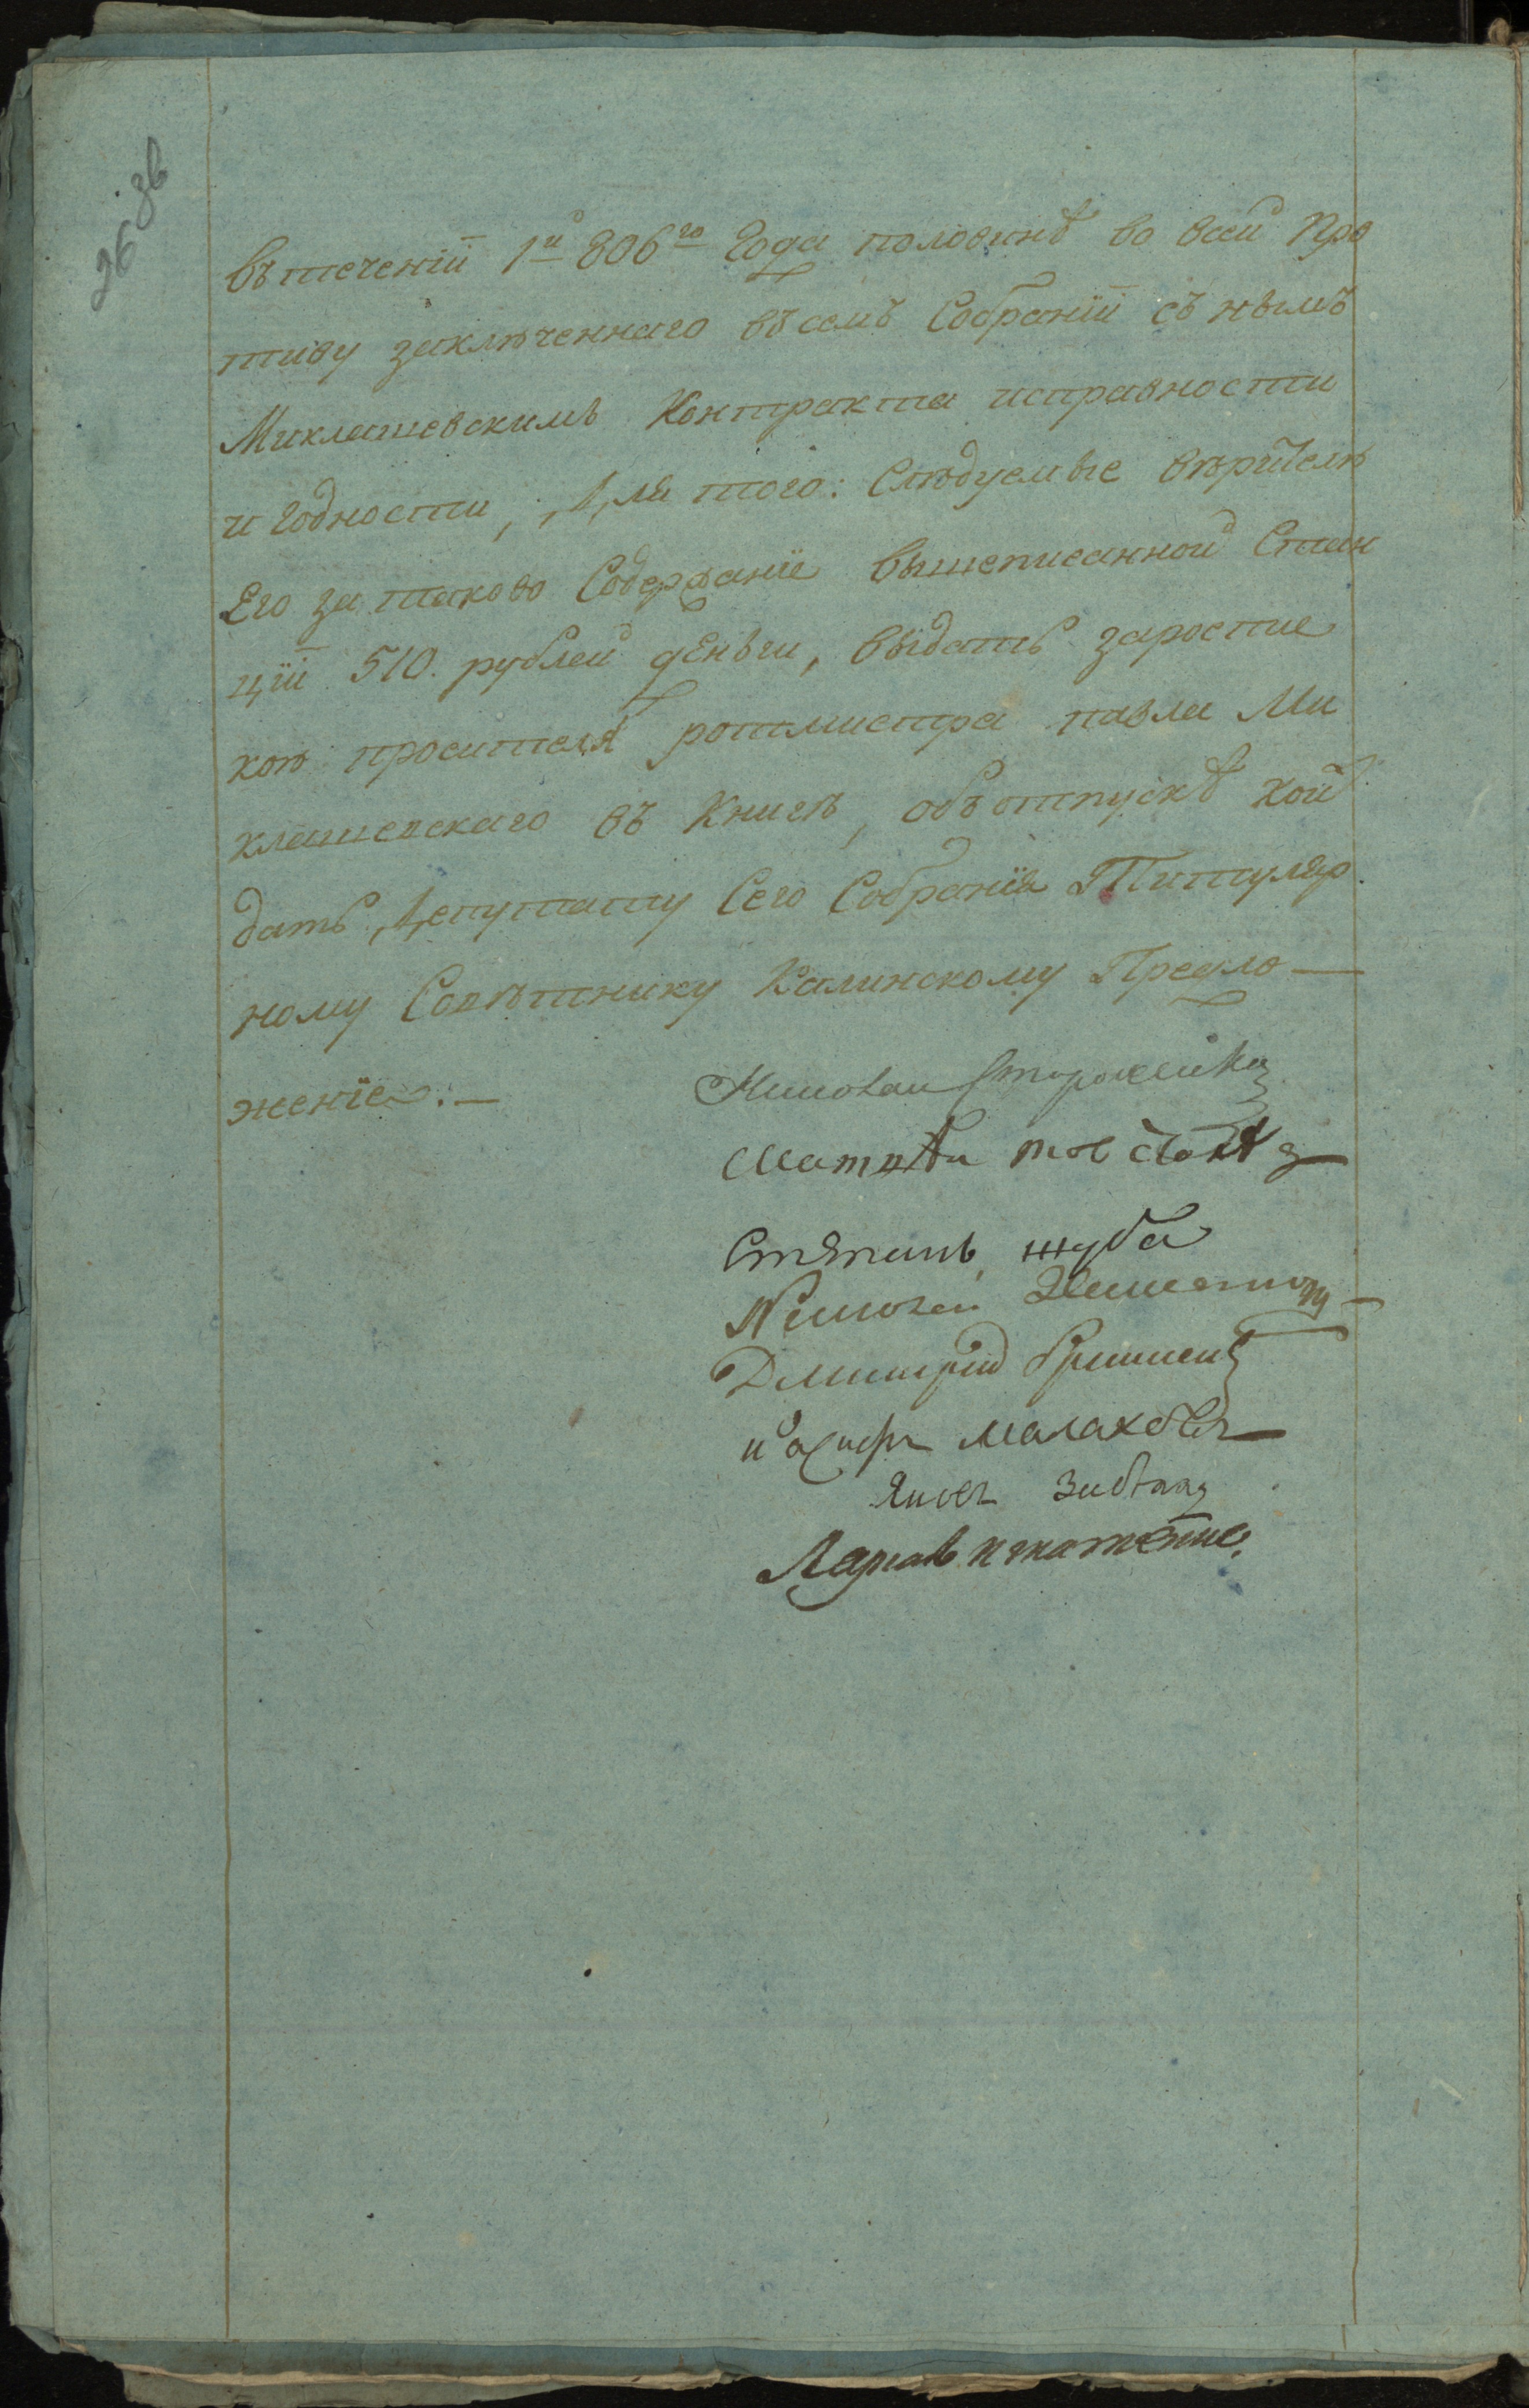 26 зв
въ теченіи 1й 806го Года половинѣ во всей Про
тиву заключеннаго въ семъ Собраніи съ нымъ
Миклашевскимъ Контракта исправности
и годности, Для того: Слѣдуемые вѣрителю
Его за таково Содержаніе вышеписанной Стан
ціи 510. рублей деньги, выдать зароспис
кою просителя ротмистра павла Ми
клашевскаго въ Книгѣ, объ отпускѣ кой
дать, Депутату Сего Собранія Титуляр
ному Совѣтнику Калинскому Предло—
женіе.—
Николай Стороженко
Матвѣй
Степанъ шуба
Николай
Дмитрій
иосифъ Малаховъ
Яковъ